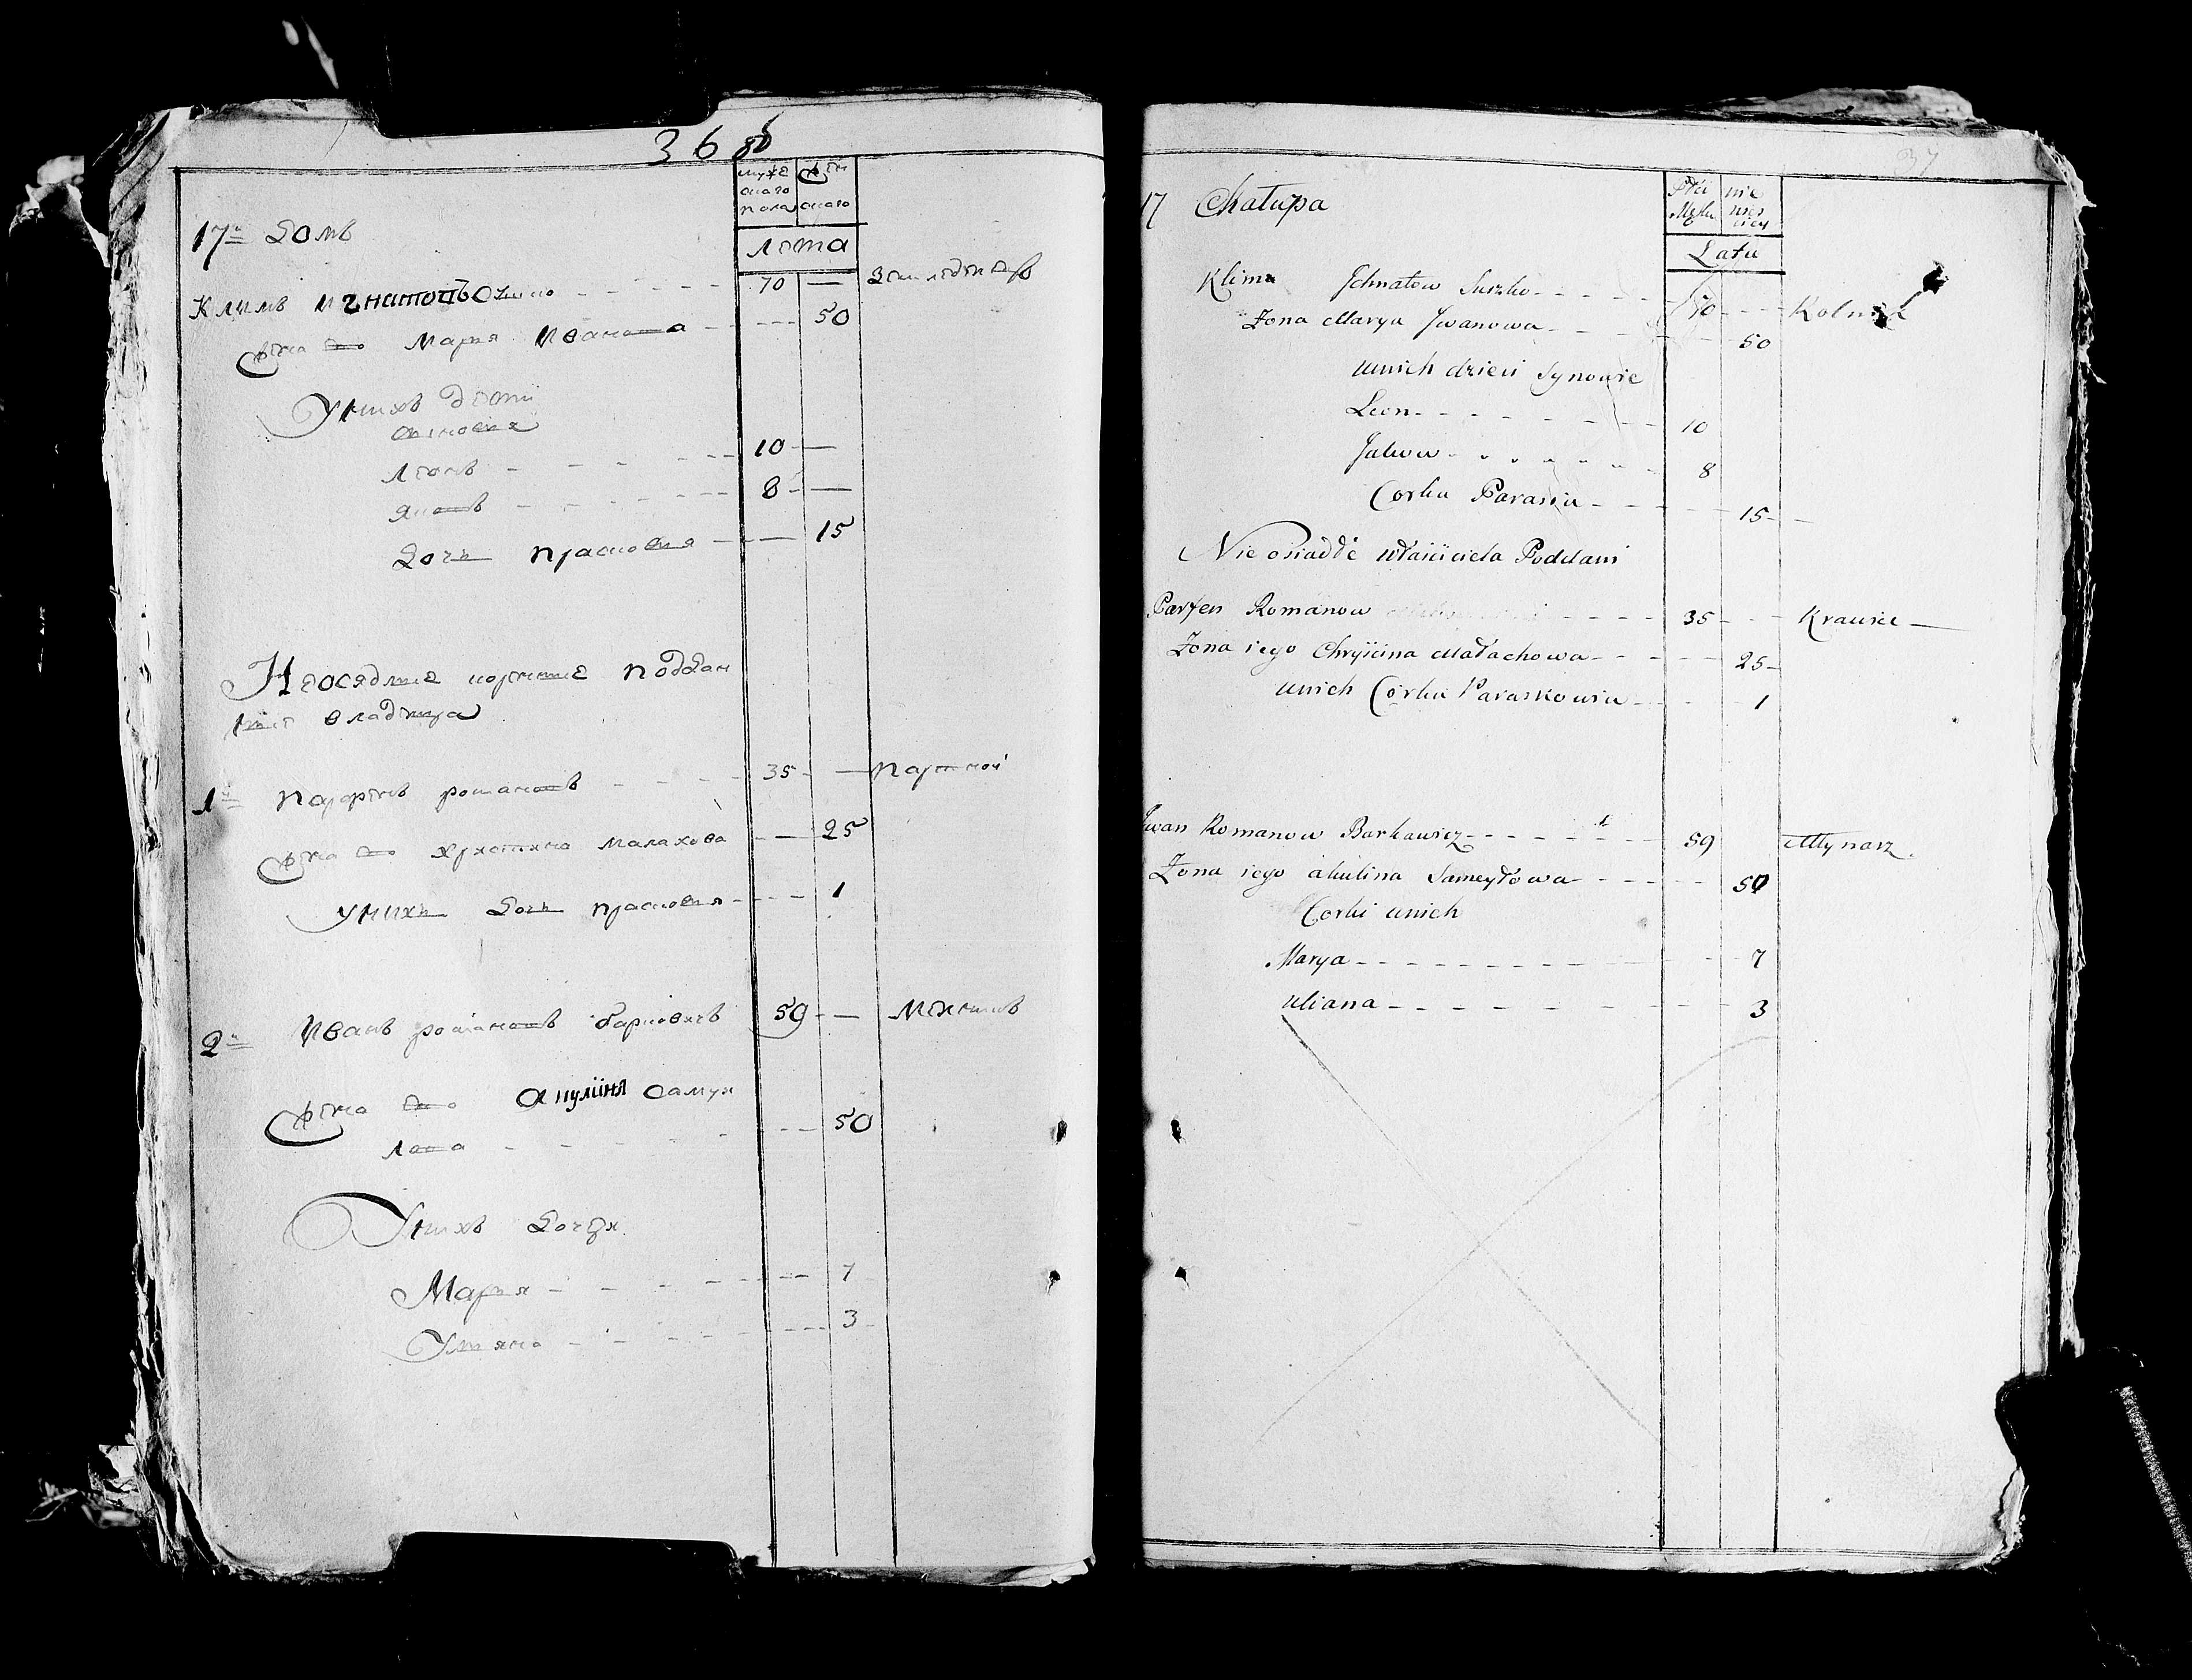 36 об
муже
скаго
пола
жен
скаго
17й Домъ
лета
Климъ Игнатовъ Сушко 70 — Земледелецъ
Жена его Марья Иванова 50
У них детей
сыновья
Леонъ 10 —
Яковъ 8 —
Дочь Прасковья — 15
Неоседлые коренные поддан
ные владельца
1й Парфенъ Романовъ 35 — Партной
Жена его Христина Малахова — 25
У них дочь Прасковья 1
2й Иванъ Романовъ Барковичъ 59 — Мельникъ
Жена его Акулина Самуй
лова 50
У нихъ дочери
Марья 7
Ульяна 3
37
Płci
Męsk
nie
wies
ciey
17 Chałupa
Latu
Klima Jchnatow Suszko 70 Rolnik
Żona Marya Jwanowa 50
unich dzieci Synowie
Leon 10
Jakow 8
Corka Parasia 15
Nie osiadłe właściciela Poddani
Parfen Romanow 35 Krawiec
Żona iego Chryścina Małachowa 25
unich Córka Paraskowia 1
Jwan Romanow Barkawicz 59 Młynarz
Żona iego akulina Sameyłowa 50
Corki unich
Marya 7
uliana 3